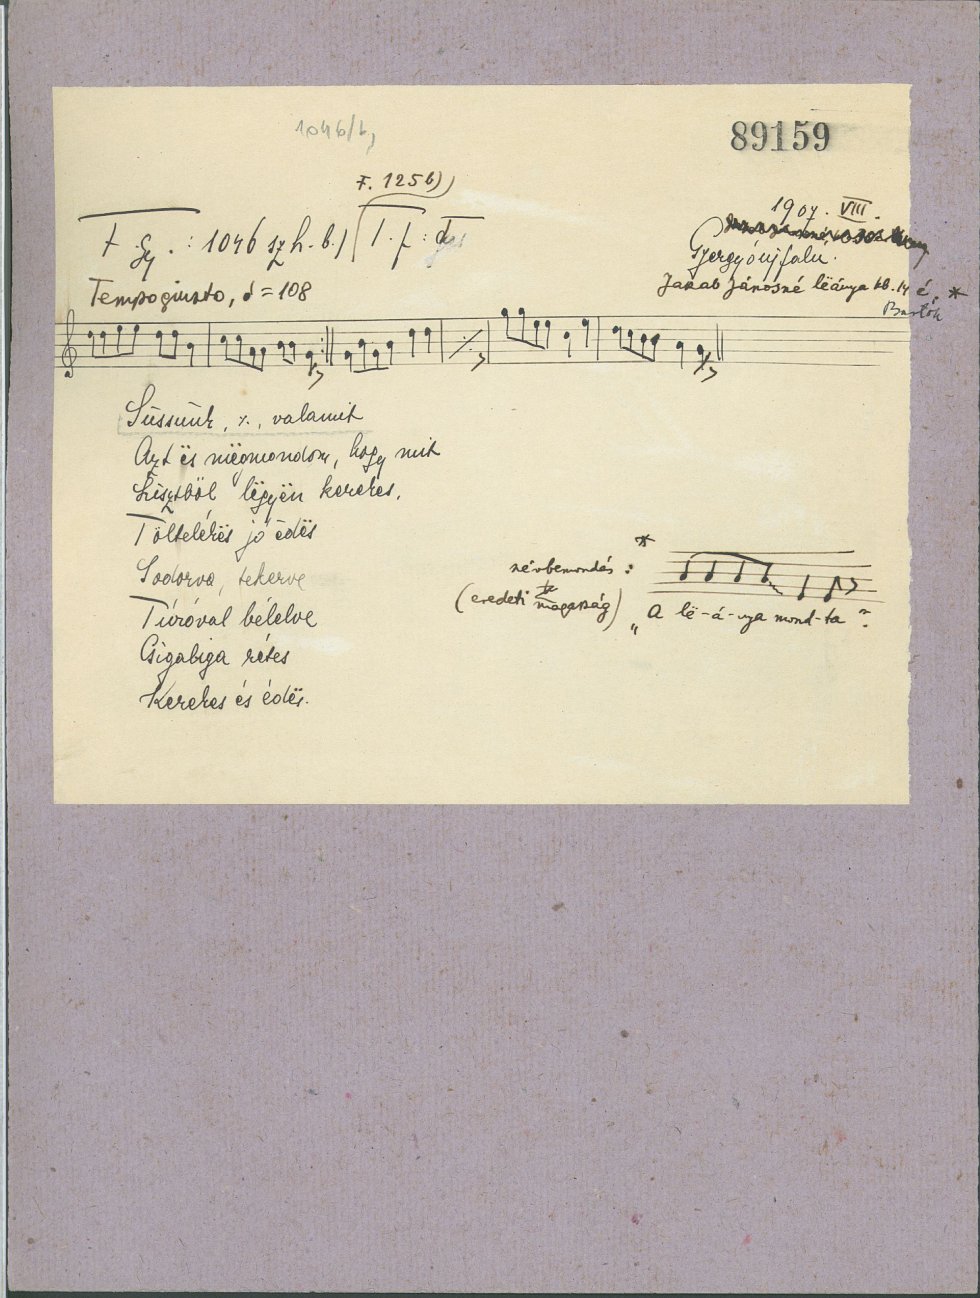 1046/b,
89159
F. 125b)
1907. VIII.
F. Gy. : 1046 sz h. b.) T. f :
Gyergyóújfalu.
Tempo giusto, = 108
Jakab Jánosné lëánya kb. 14 é. *
Bartók
Süssünk, ٪, valamit
Azt ës mëgmondom, hogy mit
Lisztből lëgyën kerekes,
Töltelékës jó édës
Sodorva, tekerve
Túróval bélelve
Csigabiga rétes
Kerekes és édës.
*
névbemondás :
(eredeti magasság)
„A lë-á-nya mond-ta ?